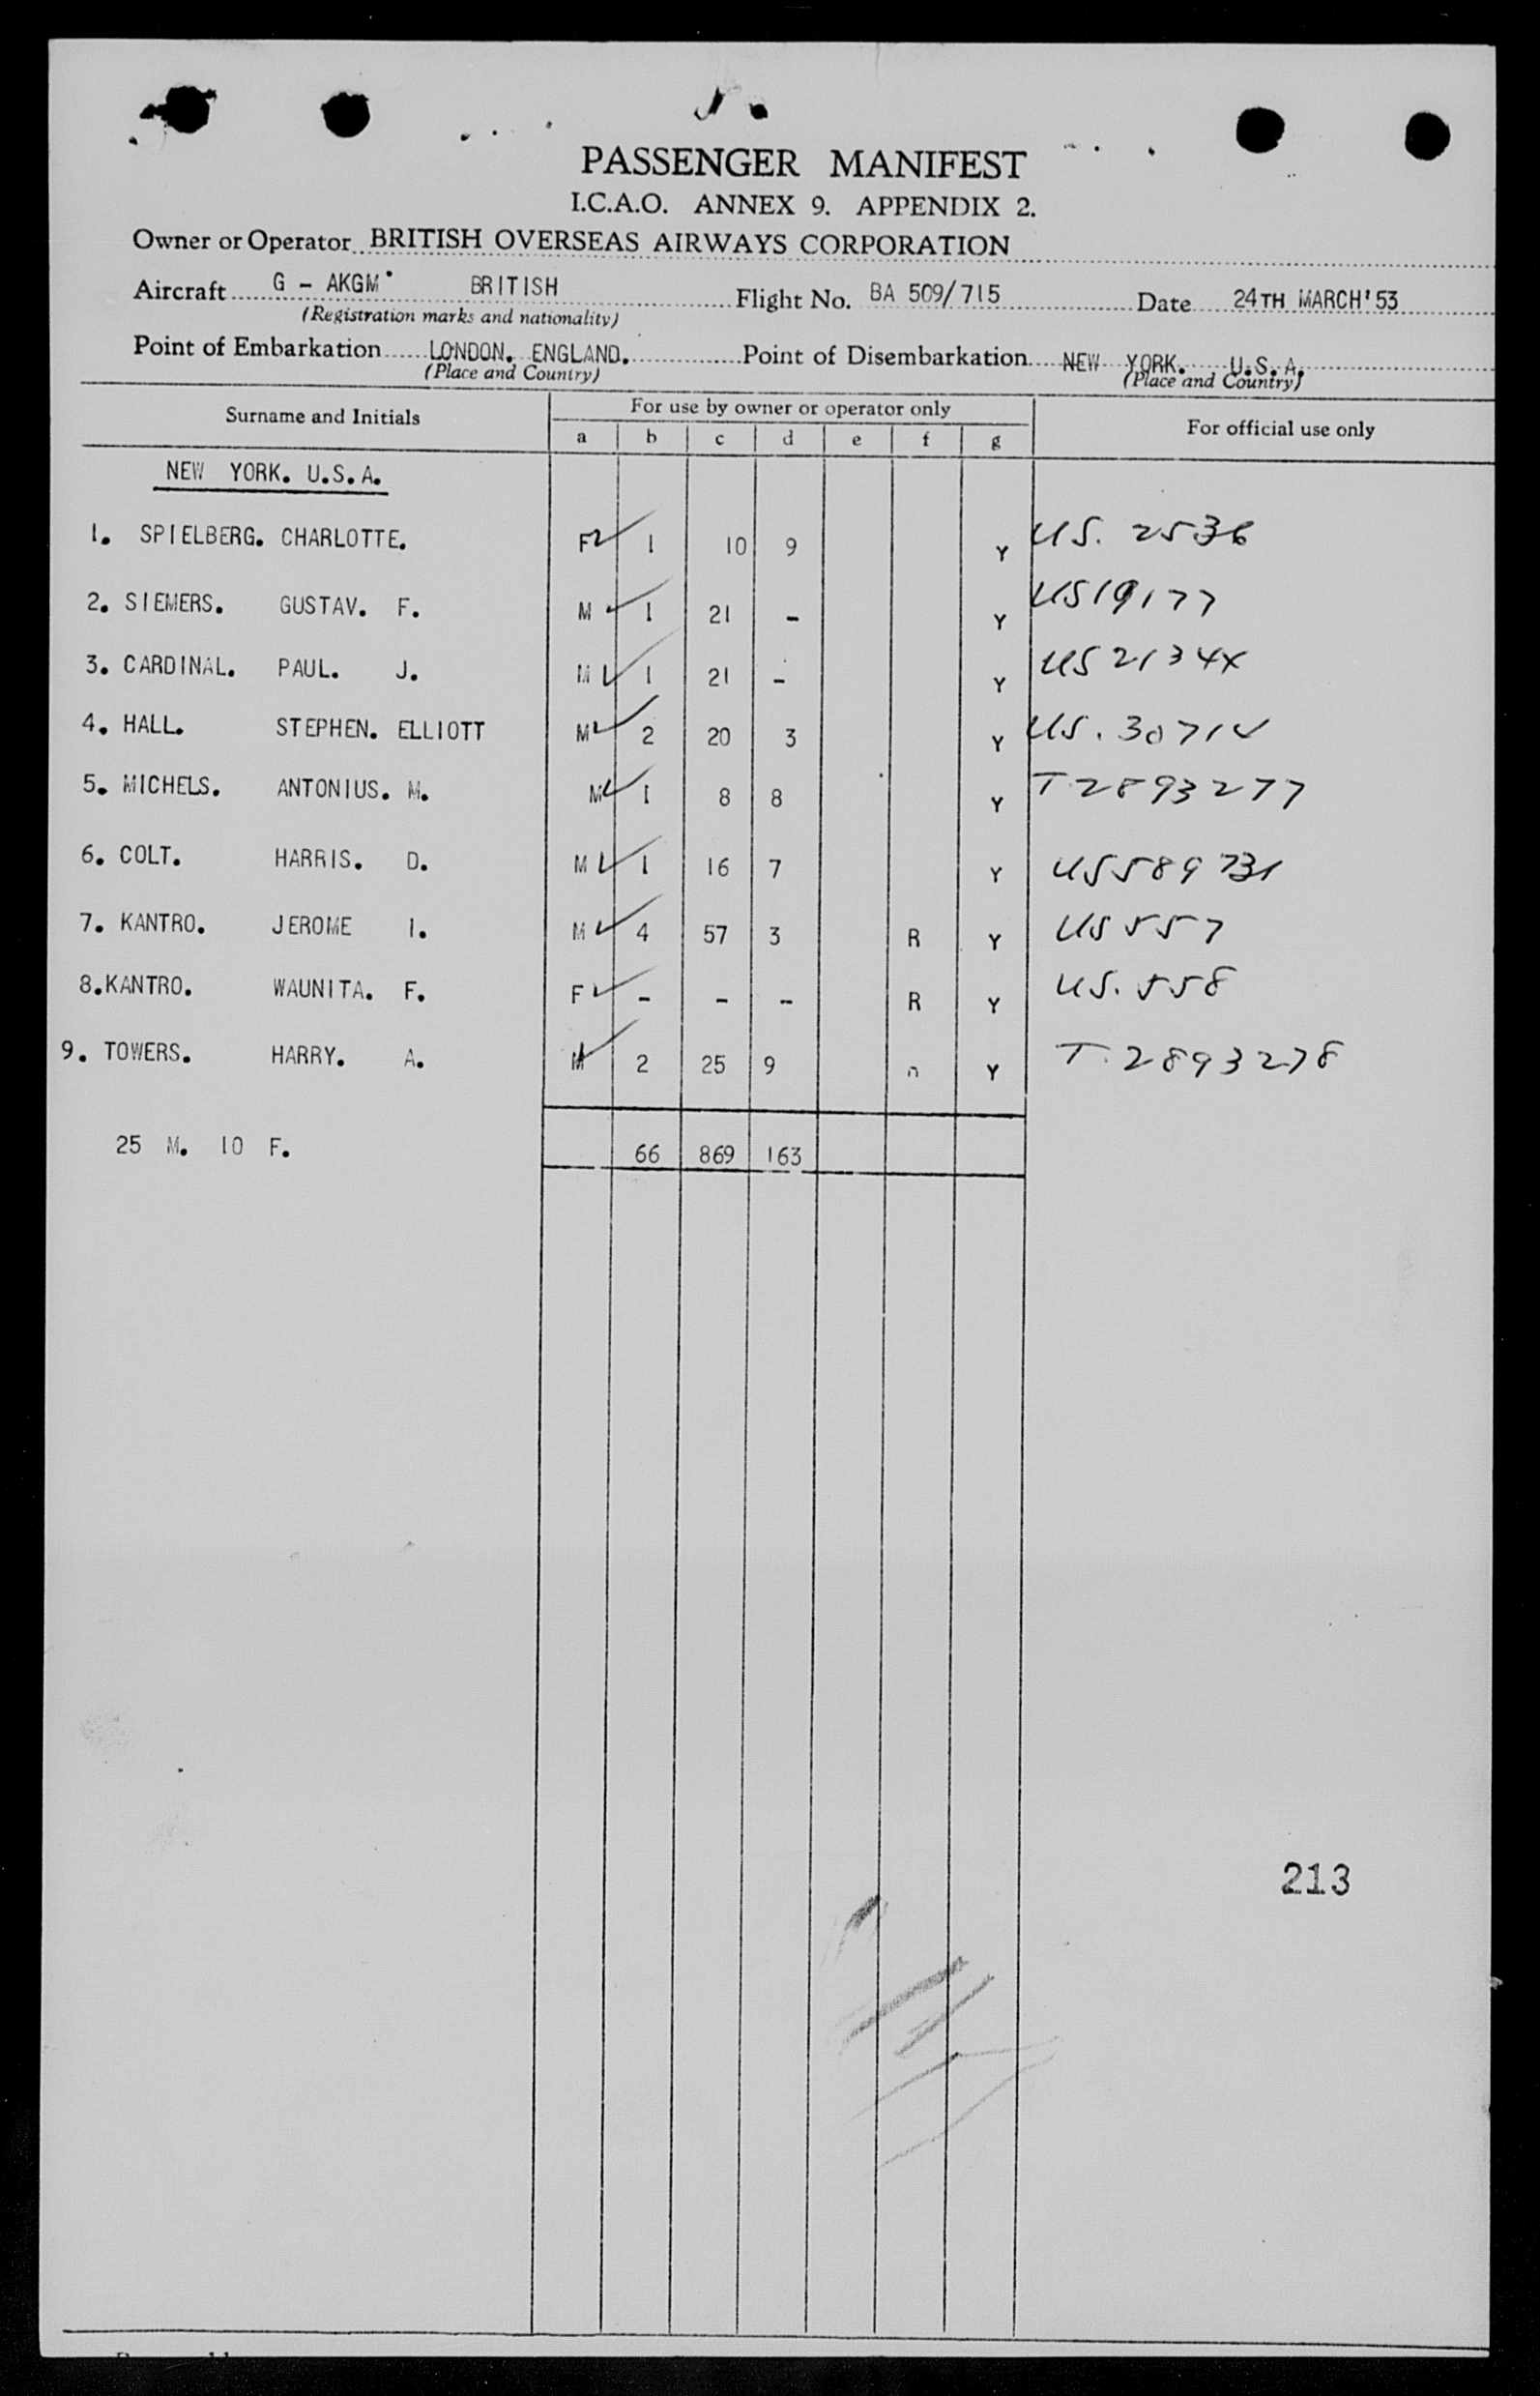 PASSENGER MANIFEST
I.C.A.O. ANNEX 9. APPENDIX 2.
Owner or Operator BRITISH OVERSEAS AIRWAYS CORPORATION
Aircraft G - AKGM BRITISH Flight No. BA 509/715 Date 24TH MARCH'53
(Registration marks and nationality)
Point of Embarkation LONDON. ENGLAND. Point of Disembarkation NEW YORK. U.S.A.
(Place and Country) (Place and Country)
Surname and Initials For use by owner or operator only For official use only
a b c d e f g
NEW YORK. U.S.A.
1. SPIELBERG. CHARLOTTE. F 1 10 9 Y US. 2536
2. SIEMERS. GUSTAV. F. M 1 21 - Y US19177
3. CARDINAL. PAUL. J. M 1 21 - Y
4. HALL. STEPHEN. ELLIOTT M 2 20 3 Y
5. MICHELS. ANTONIUS. M. M 1 8 8 Y T2893277
6. COLT. HARRIS. D. M 1 16 7 Y US589731
7. KANTRO. JEROME I. M 4 57 3 R Y US557
8.KANTRO. WAUNITA. F. F - - - R Y US.558
9. TOWERS. HARRY. A. M 2 25 9 Y T.2893278
25 M. 10 F. 66 869 163
213